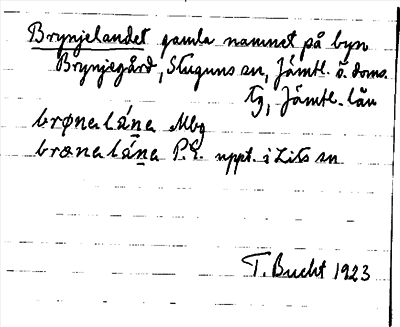 Brynjelandet gamla namnet på byn
Brynjegård, Stuguns sn, Jämtl. ö. doms.
tg, Jämtl. län
brønalána Mbg
brænalána P.E. uppt. i Lits sn
T. Bucht 1923